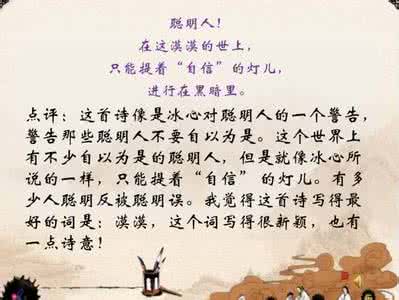 聪明人！
在这漠漠的世上，
只能提着“自信”的灯儿，
进行在黑暗里。
点评：这首诗像是冰心对聪明人的一个警告，
警告那些聪明人不要自以为是。这个世界上
有不少自以为是的聪明人，但是就像冰心所
说的一样，只能提着“自信”的灯儿。有多
少人聪明反被聪明误。我觉得这首诗写得最
好的词是：漠漠，这个词写得很新颖，也有
一点诗意！